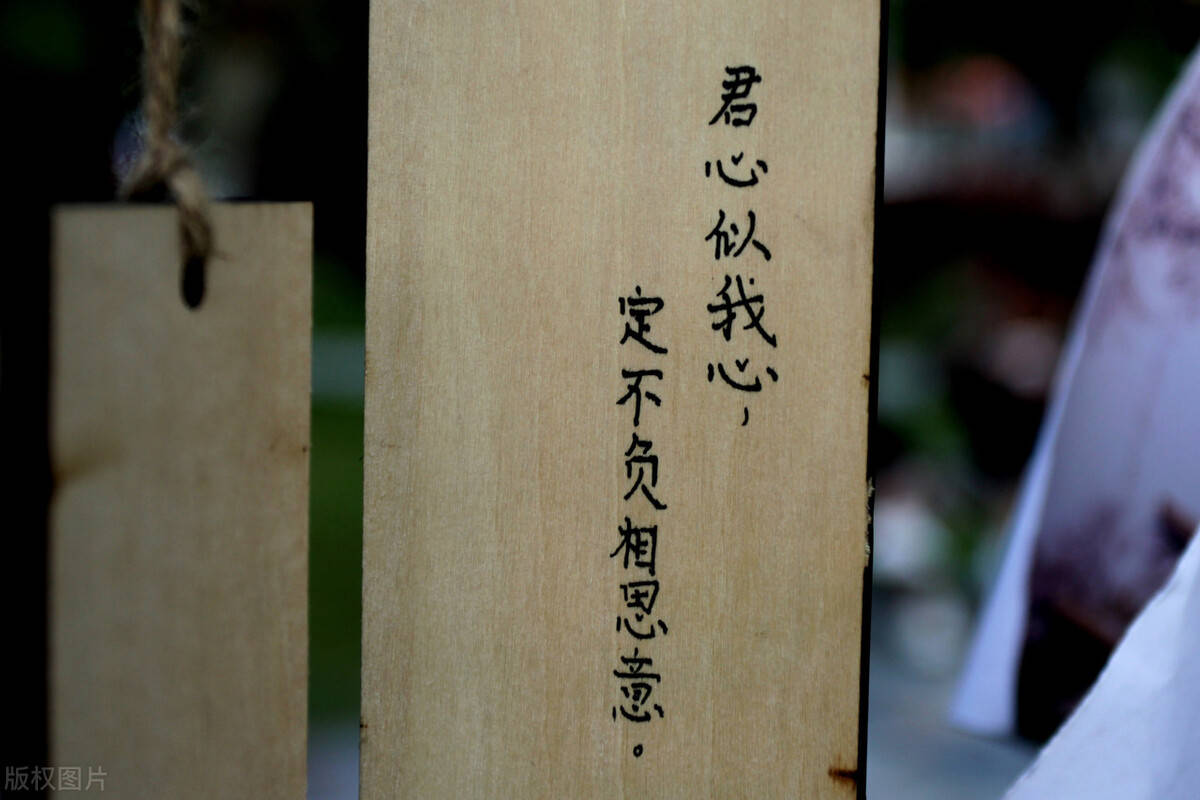 君心似我心，
定不负相思意。
版权图片